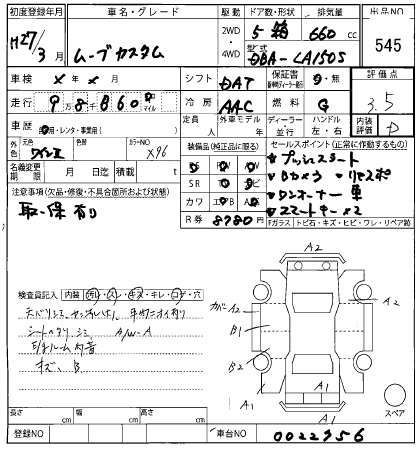 初度登録年月 車名・グレード 駆動 ドア数・形状 排気量 出品NO
H27/3月 ムーブカスタム 2WD・4WD 5 箱 660 cc 545
型式 DBA-LA150S
車検 × 年 × 月 シフト DAT 保証書 有・無 評価点 3.5
走行 98860 km マイル 冷房 AAC 燃料 G
車歴 自家用・レンタ・事業用( ) 外車モデル 年 ディーラー 並行 ハンドル 左・右 内装評価 D
外色 元色 ワイン 色替 カラーNO X96 装備品(純正品に限る) セールスポイント(正常に作動するもの)
名義変更期限 月 日迄 積載 t
PS PW AW
SR TV ナビ
カワ エアB AB
R券 8780 円
プッシュスタート
Bカメラ リヤスポ
ワンオーナー車
スマートキー×2
Fガラス トビ石・キズ・ヒビ・ワレ・リペア跡
注意事項(欠品・修復・不具合箇所および状態)
取・保有り
検査員記入 内装 汚れ・スレ・キズ・キレ・コゲ・穴
シートスワリ シミ A/W-A
キズ、B
A2
カバーA2
B1
B2
A1
A2
A1
A1
A1
スペア
長さ cm 幅 cm 高さ cm
登録NO 車台NO 0022956